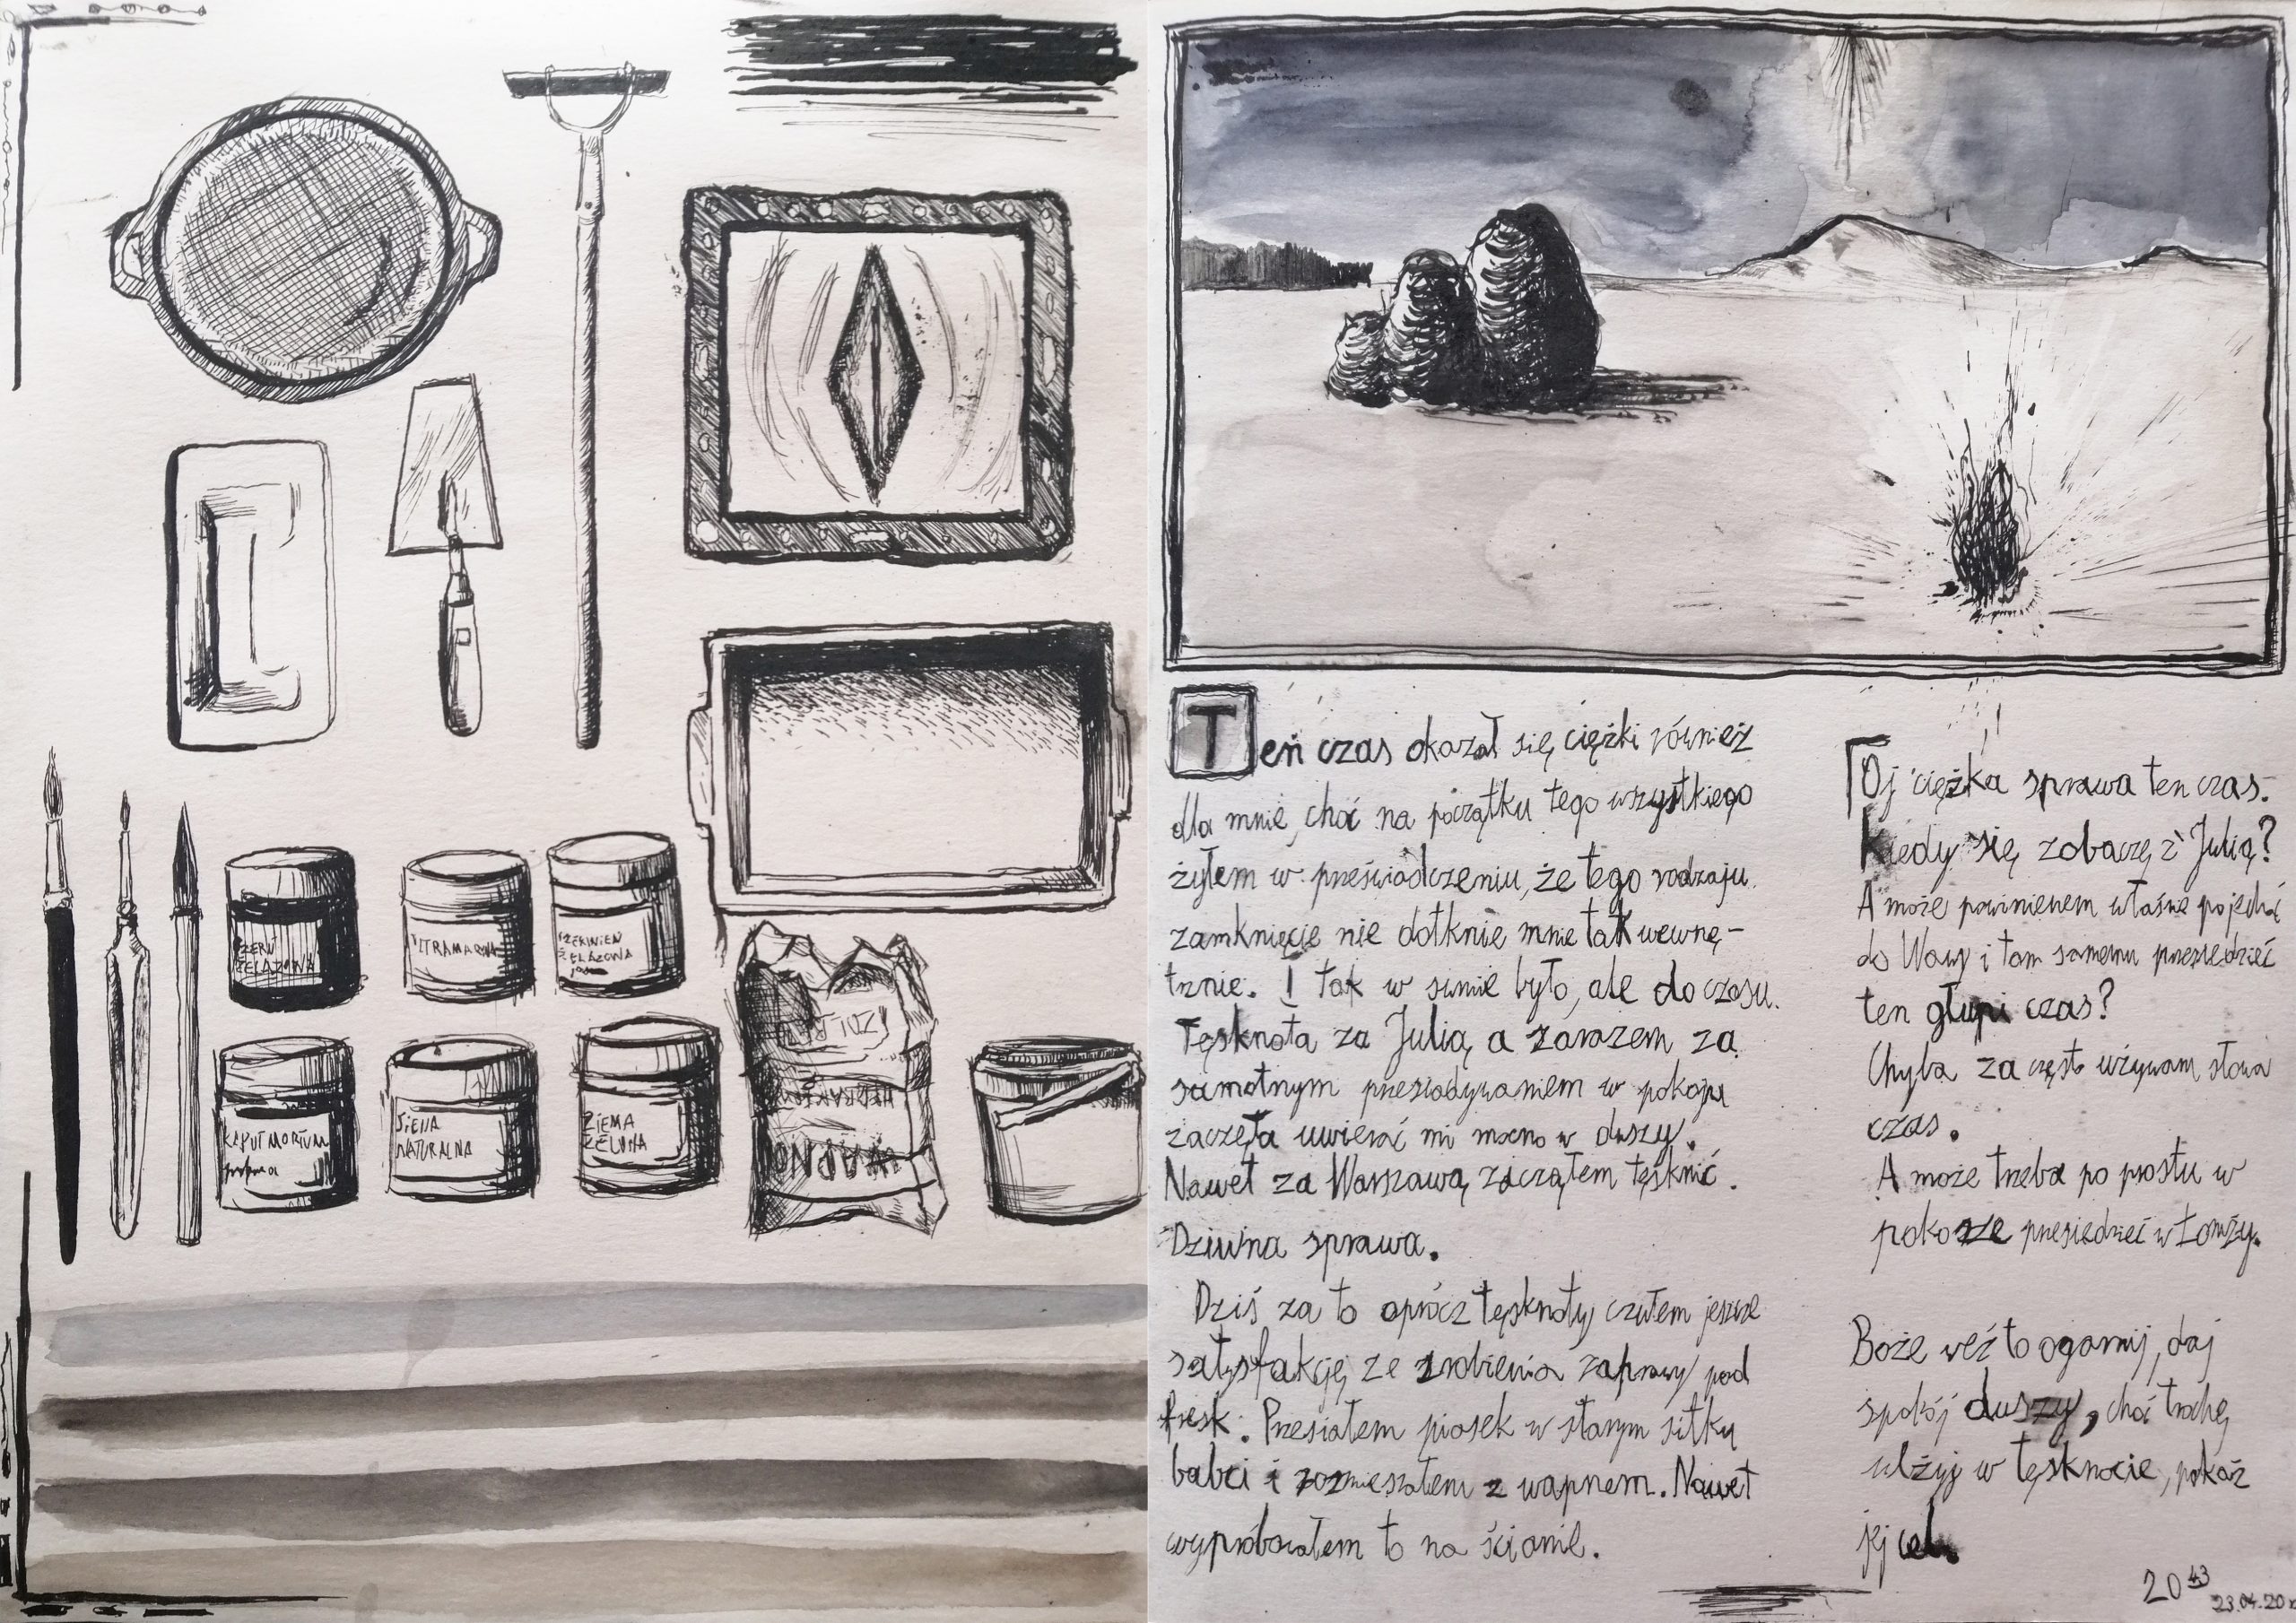 CZERŃ
ŻELAZOWA
ULTRAMARYNA
CZERWIEŃ
ŻELAZOWA
KAPUT MORTUUM
SIENA
NATURALNA
ZIEMA
ZIELONA
WAPNO
Ten czas okazał się ciężki również
dla mnie, choć na początku tego wszystkiego
żyłem w przeświadczeniu, że tego rodzaju
zamknięcie nie dotknie mnie tak wewnę-
trznie. I tak w sumie było, ale do czasu.
Tęsknota za Julią a zarazem za
samotnym przesiadywaniem w pokoju
zaczęła uwierać mi mocno w duszy.
Nawet za Warszawą zacząłem tęsknić.
Dziwna sprawa.
Dziś za to oprócz tęsknoty czułem jeszcze
satysfakcję ze zrobienia zaprawy pod
fresk. Przesiałem piasek w starym sitku
babci i rozmieszałem z wapnem. Nawet
wypróbowałem to na ścianie.
Oj ciężka sprawa ten czas.
Kiedy się zobaczę z Julią?
A może powinienem właśnie pojechać
do Wawy i tam samemu przesiedzieć
ten głupi czas?
Chyba za często używam słowa
czas.
A może trzeba po prostu w
pokorze przesiedzieć w Łomży.
Boże weź to ogarnij, daj
spokój duszy, choć trochę
ulżyj w tęsknocie, pokaż
jej cel.
20 43
23.04.20